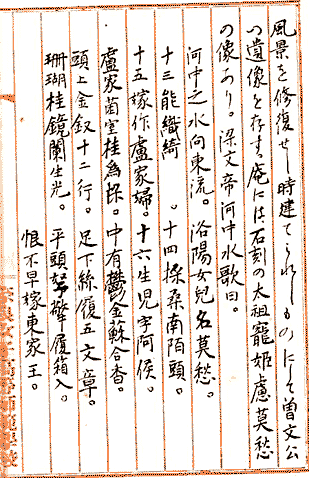 風景を修復せし時建てられしものにして曽文公
の遺像を存す。庵には石刻の太祖寵姫盧莫愁
の像あり。梁文帝河中水歌曰。
河中之水向東流。洛陽女兒名莫愁。
十三能織綺 。十四採桑南陌頭。
十五嫁作盧家婦。十六生児字阿侯。
盧家菌室桂為梁。中有鬱金蘇合香。
頭上金釵十二行。足下絲履五文章。
珊瑚桂鏡闌生光。平頭奴擎履箱入。
恨不早嫁東家王。
奈良女子高等師範學校